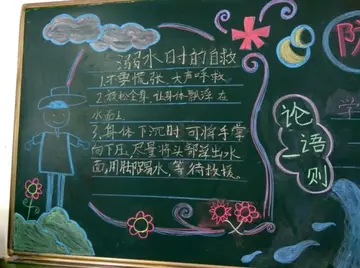 溺水时的自救
1.不要慌张,大声呼救
2.放松全身,让身体飘浮在
水面上
3.身体下沉时可将手掌
向下压,尽量将头部浮出水
面,用脚踢水,等待救援。
论语
一则
防
学